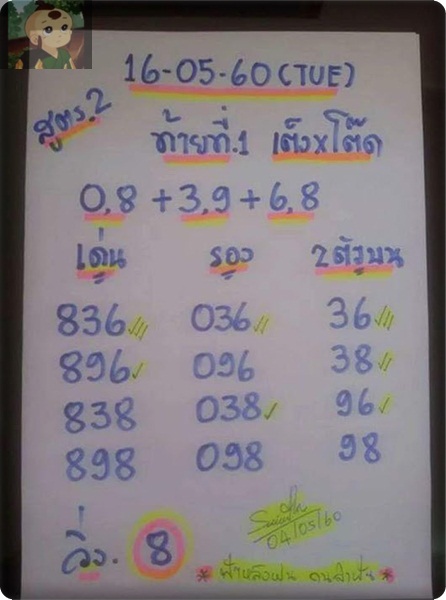 16-05-60 (TUE)
สูตร.2
ท้ายที่.1 เต็งxโต๊ด
0,8 + 3,9 + 6,8
เด่น รอง 2ตัวบน
836 036 36
896 096 38
838 038 96
898 098 98
04/05/60
วิ่ง. 8